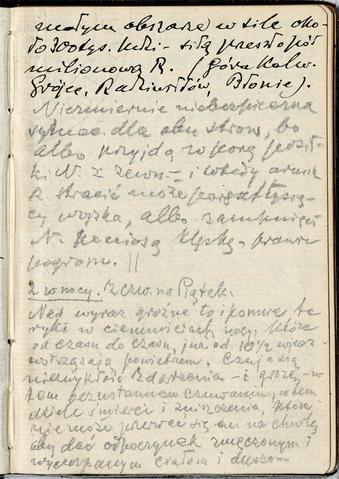 małym obszarze w sile oko-
ło 300 tys. ludzi - siłą przeszło pół
milionową R. (Góra Kalw.
Grójec, Radziwiłów, Błonie).
Niezmiernie niebezpieczna
sytuac. dla obu stron, bo
albo przyjdą w porę posił-
ki N. z zewn. - i wtedy armia
R. stracić może pięćset tysię-
cy wojska, albo zamknięci
N. poniosą klęskę - prawie
pogrom. ||
2 w nocy. Z czw. na Piątek.
Nad wyraz groźne to i ponure te
ryki w ciemnościach nocy, które
od czasu do czasu, już od 10½ wpior.
wstrząsają powietrzem. Czuje się
niezwykłość zdarzenia - i grozę - w
tem bezustannem czuwaniu, w tem
dziele śmierci i zniszczenia, które
nie może przerwać się ani na chwilę
aby dać odpoczynek zmęczonym i
wyczerpanym ciałom i duszom